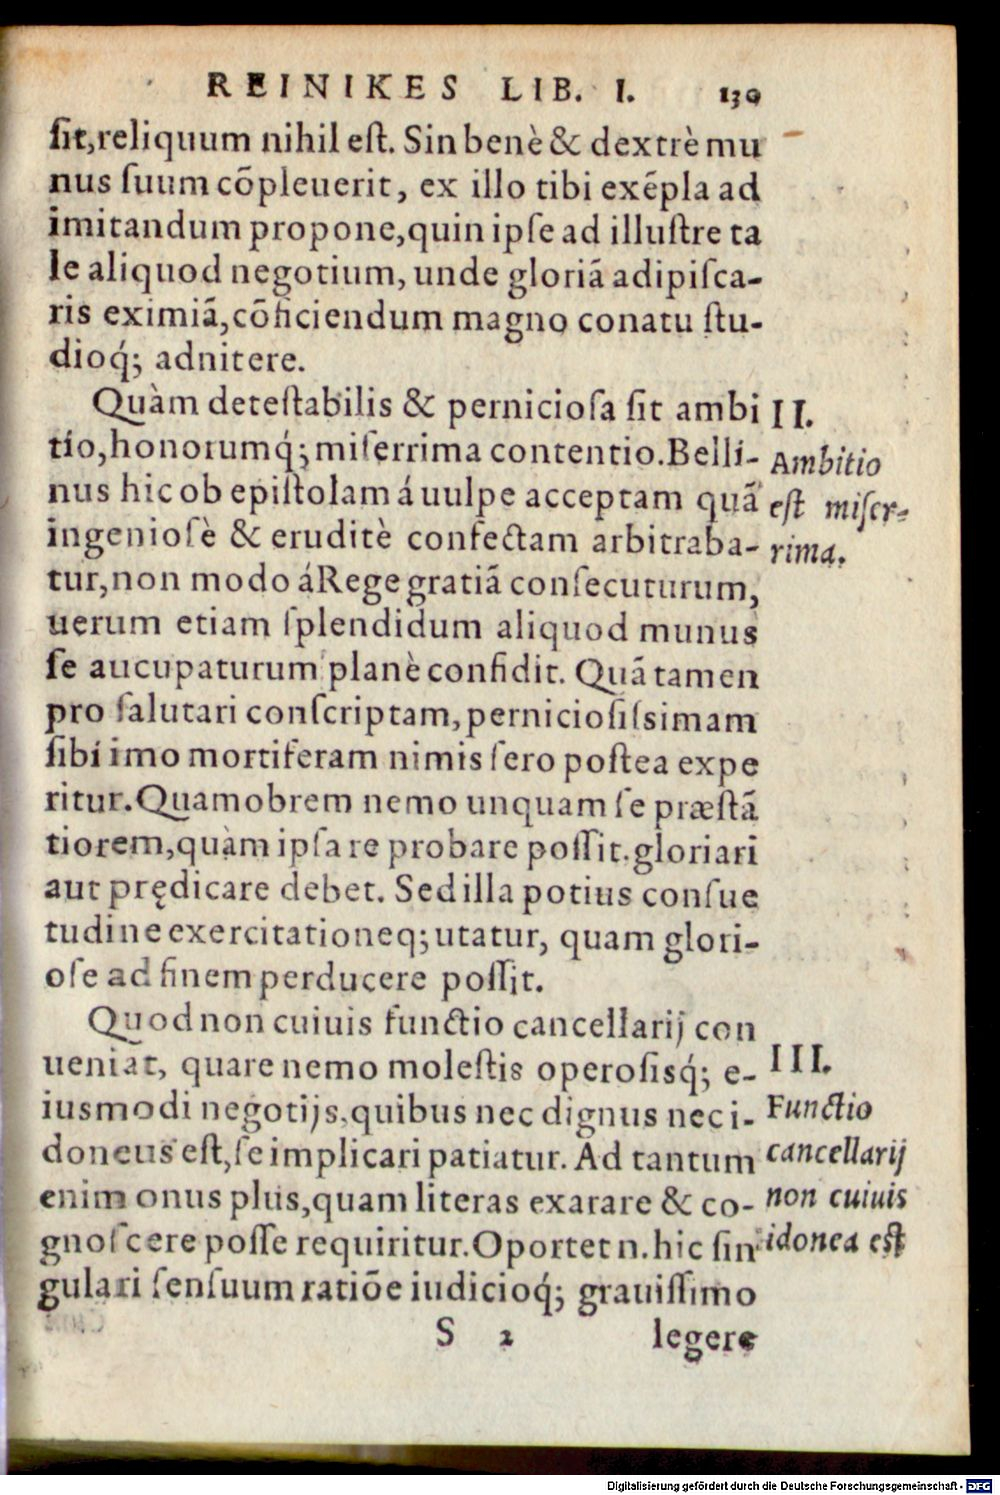 REINIKES LIB. I. 130
ſit,reliquum nihil eſt. Sin benè & dextrè mu
nus ſuum cōpleuerit, ex illo tibi exēpla ad
imitandum propone,quin ipſe ad illuſtre ta
le aliquod negotium, unde gloriã adipiſca-
ris eximiã,cōficiendum magno conatu ſtu-
dioq́; adnitere.
Quàm deteſtabilis & pernicioſa ſit ambi
tio,honorumq́; miſerrima contentio.Belli-
nus hic ob epiſtolam á uulpe acceptam quã
ingenioſè & eruditè confectam arbitraba-
tur,non modo á Rege gratiã conſecuturum,
uerum etiam ſplendidum aliquod munus
ſe aucupaturum planè confidit. Quã tamen
pro ſalutari conſcriptam,pernicioſiſsimam
ſibi imo mortiferam nimis ſero poſtea expe
ritur.Quamobrem nemo unquam ſe præſtã
tiorem,quàm ipſa re probare poſſit,gloriari
aut prędicare debet. Sed illa potius conſue
tudine exercitationeq; utatur, quam glori-
oſe ad finem perducere poſſit.
Quod non cuiuis functio cancellarij con
ueniat, quare nemo moleſtis operoſisq́; e-
iusmodi negotijs,quibus nec dignus nec i-
doneus eſt,ſe implicari patiatur. Ad tantum
enim onus plus,quam literas exarare & co-
gnoſcere poſſe requiritur.Oportet n. hic ſin
gulari ſenſuum ratiōe iudicioq́; grauiſſimo
S 2 legere
II.
Ambitio
eſt miſer-
rima.
III.
Functio
cancellarij
non cuiuis
idonea eſt
Digitalisierung gefördert durch die Deutsche Forschungsgemeinschaft - DFG